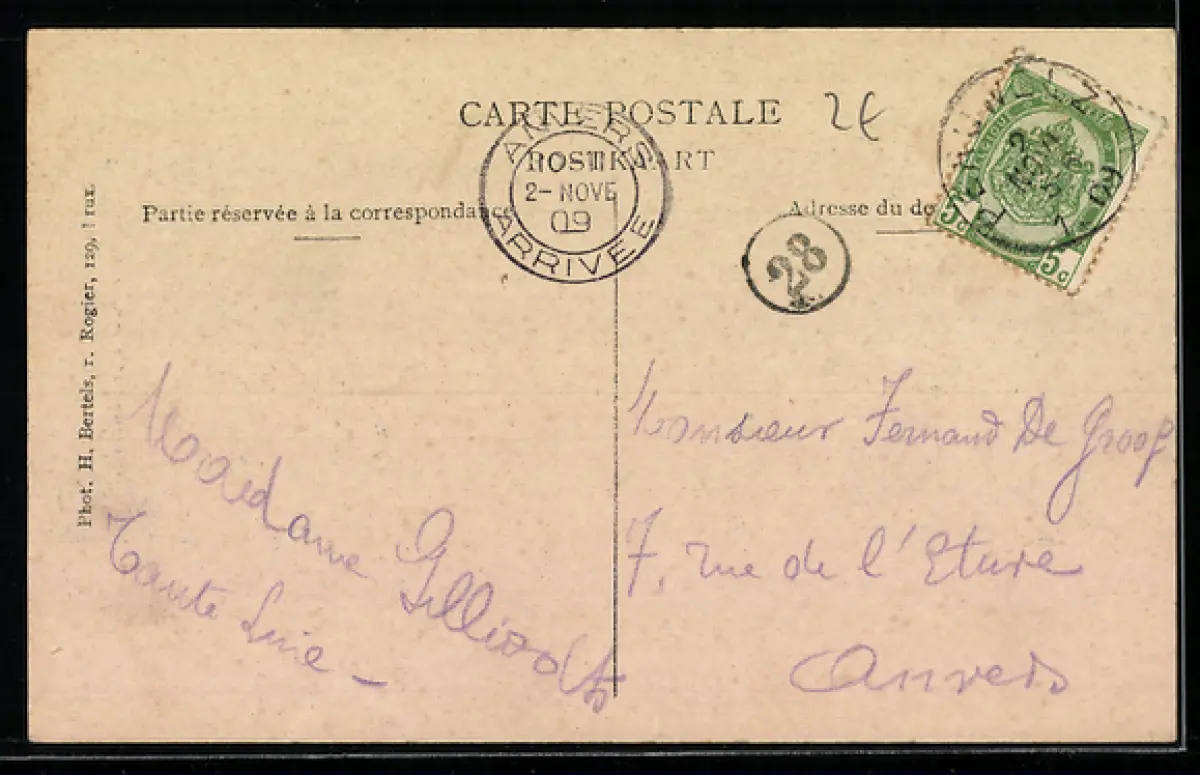 CARTE POSTALE
POSTKAART
2€
Partie réservée à la correspondance
Adresse du de
ANVERS
2- NOVE
09
ARRIVEE
28
2
NOV
09
BELGIQUE
5c 5c
Phot. H. Bertels, r. Rogier, 129, Brux.
Monsieur Fernand De Groof
7, rue de l'Etuve
Anvers
Madame Gilliodts
Tante